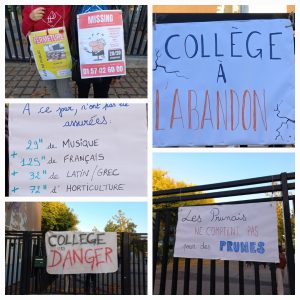 MISSING
01 57 02 60 00
COLLÈGE
À
L'ABANDON
A ce jour, n'ont pas été
assurées.
29H de MUSIQUE
+ 125H de FRANÇAIS
+ 32H de LATIN/GREC
+ 72H d'HORTICULTURE
COLLEGE
EN
DANGER
Les Prunais
NE COMPTENT PAS
pour des PRUNES